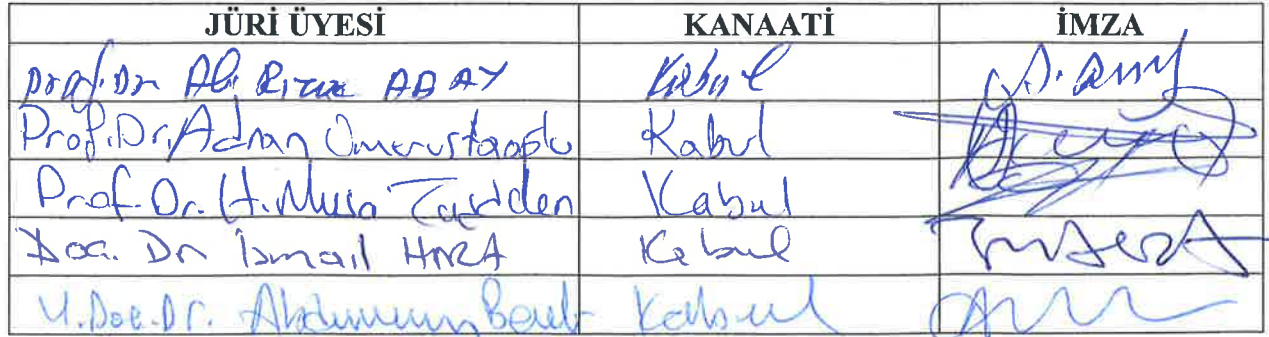 JÜRİ ÜYESİ KANAATİ İMZA
Prof. Dr Ali Rıza ABAY Kabul
Prof. Dr. Adnan Ömerustaoğlu Kabul
Prof. Dr. H. Musa Taşdelen Kabul
Doç. Dr İsmail HIRA Kabul
Y. Doç. Dr. Kabul